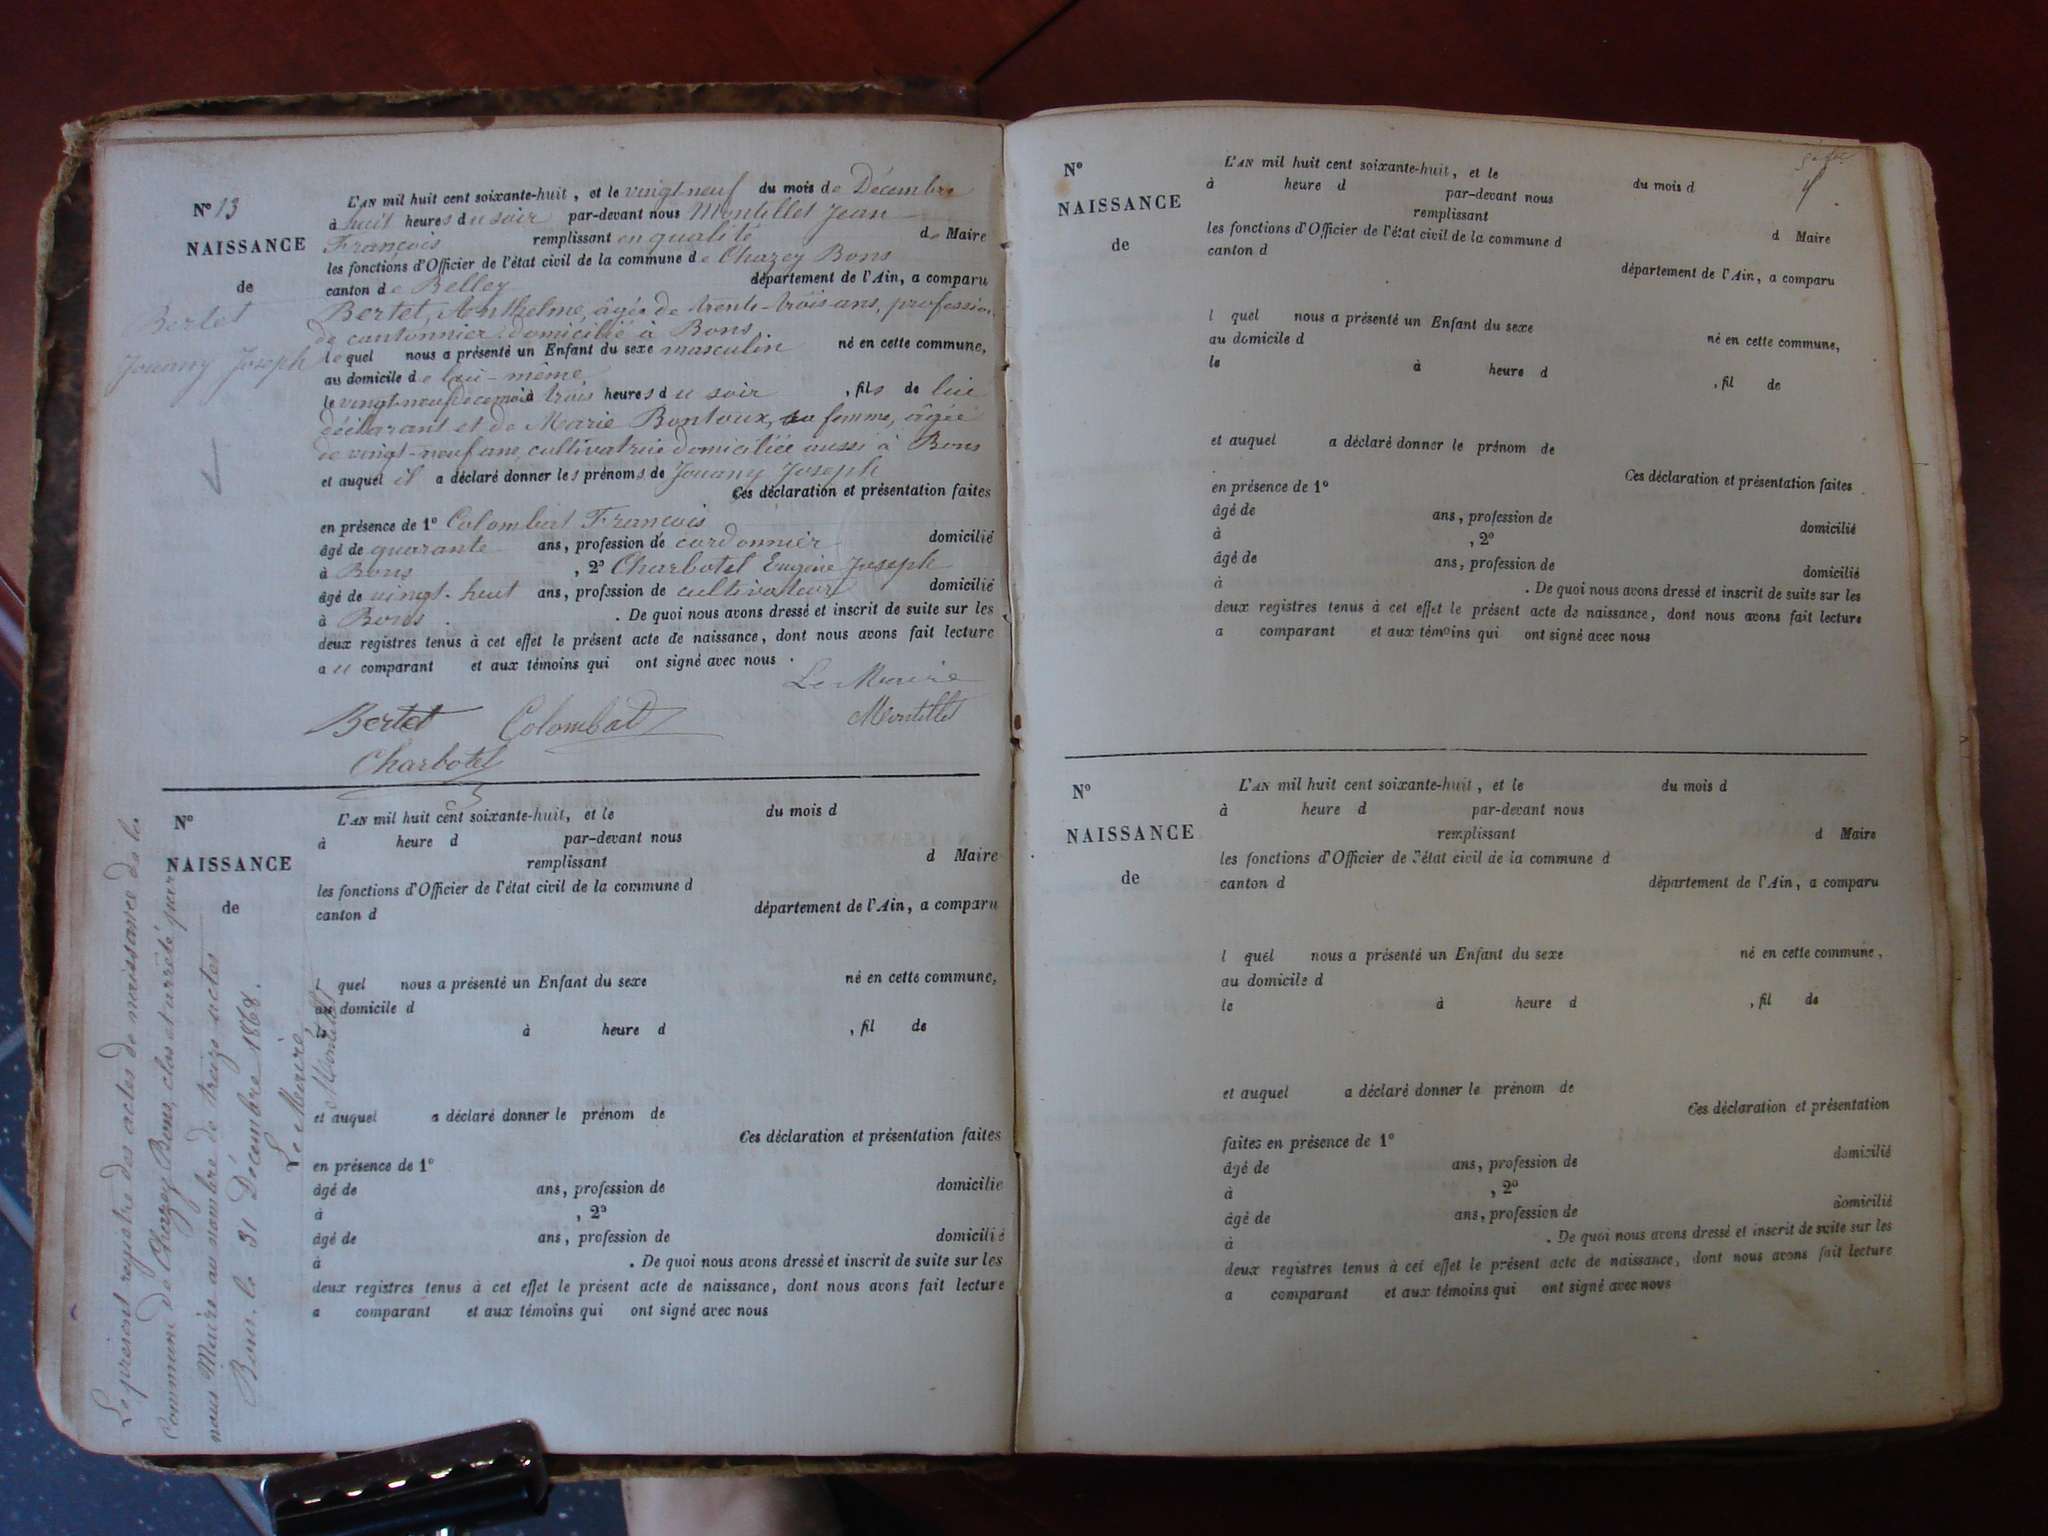 N° 13
NAISSANCE
de
Bertet
Jouany Joseph
L'AN mil huit cent soixante-huit, et le vingt neuf du mois de Décembre
à huit heures du soir par-devant nous Montillet Jean
François remplissant en qualité de Maire
les fonctions d'Officier de l'état civil de la commune de Chazey Bons
canton de Belley département de l'Ain, a comparu
Bertet, Anthelme, âgé de trente-trois ans, profession
de cantonnier domicilié à Bons,
lequel nous a présenté un Enfant du sexe masculin né en cette commune,
au domicile de lui-même
le vingt neuf décembre à trois heures du soir, fils de lui
déclarant et de Marie Bontoux, sa femme, âgée
de vingt-neuf ans, cultivatrice domiciliée aussi à Bons
et auquel il a déclaré donner les prénoms de Jouany Joseph
Ces déclaration et présentation faites
en présence de 1° Colombat François
âgé de quarante ans, profession de cordonnier domicilié
à Bons, 2° Charbotel Eugène Joseph
âgé de vingt-huit ans, profession de cultivateur domicilié
à Bons. De quoi nous avons dressé et inscrit de suite sur les
deux registres tenus à cet effet le présent acte de naissance, dont nous avons fait lecture
au comparant et aux témoins qui ont signé avec nous.
Le Maire
Bertet Colombat Montillet
Charbotel
N°
NAISSANCE
de
L'AN mil huit cent soixante-huit, et le du mois d
à heure d par-devant nous
remplissant d Maire
les fonctions d'Officier de l'état civil de la commune d
canton d département de l'Ain, a comparu
quel nous a présenté un Enfant du sexe né en cette commune,
au domicile d
à heure d , fil de
et auquel a déclaré donner le prénom de
Ces déclaration et présentation faites
en présence de 1°
âgé de ans, profession de domicilié
à , 2°
âgé de ans, profession de domicilié
à . De quoi nous avons dressé et inscrit de suite sur les
deux registres tenus à cet effet le présent acte de naissance, dont nous avons fait lecture
a comparant et aux témoins qui ont signé avec nous
Le présent registre des actes de naissance de la
Commune de Chazey Bons, clos et arrêté par
nous Maire au nombre de treize actes
Bons, le 31 Décembre 1868.
Le Maire
Montillet
N°
NAISSANCE
de
L'AN mil huit cent soixante-huit, et le du mois d
à heure d par-devant nous
remplissant d Maire
les fonctions d'Officier de l'état civil de la commune d
canton d
département de l'Ain, a comparu
l quel nous a présenté un Enfant du sexe
au domicile d né en cette commune,
le à heure d , fil de
et auquel a déclaré donner le prénom de
Ces déclaration et présentation faites
en présence de 1°
âgé de ans, profession de domicilié
à , 2°
âgé de ans, profession de domicilié
à . De quoi nous avons dressé et inscrit de suite sur les
deux registres tenus à cet effet le présent acte de naissance, dont nous avons fait lecture
a comparant et aux témoins qui ont signé avec nous
N°
NAISSANCE
de
L'AN mil huit cent soixante-huit, et le du mois d
à heure d par-devant nous
remplissant d Maire
les fonctions d'Officier de l'état civil de la commune d
canton d département de l'Ain, a comparu
l quel nous a présenté un Enfant du sexe né en cette commune,
au domicile d
le à heure d , fil de
et auquel a déclaré donner le prénom de
Ces déclaration et présentation
faites en présence de 1°
âgé de ans, profession de domicilié
à , 2°
âgé de ans, profession de domicilié
à . De quoi nous avons dressé et inscrit de suite sur les
deux registres tenus à cet effet le présent acte de naissance, dont nous avons fait lecture
a comparant et aux témoins qui ont signé avec nous